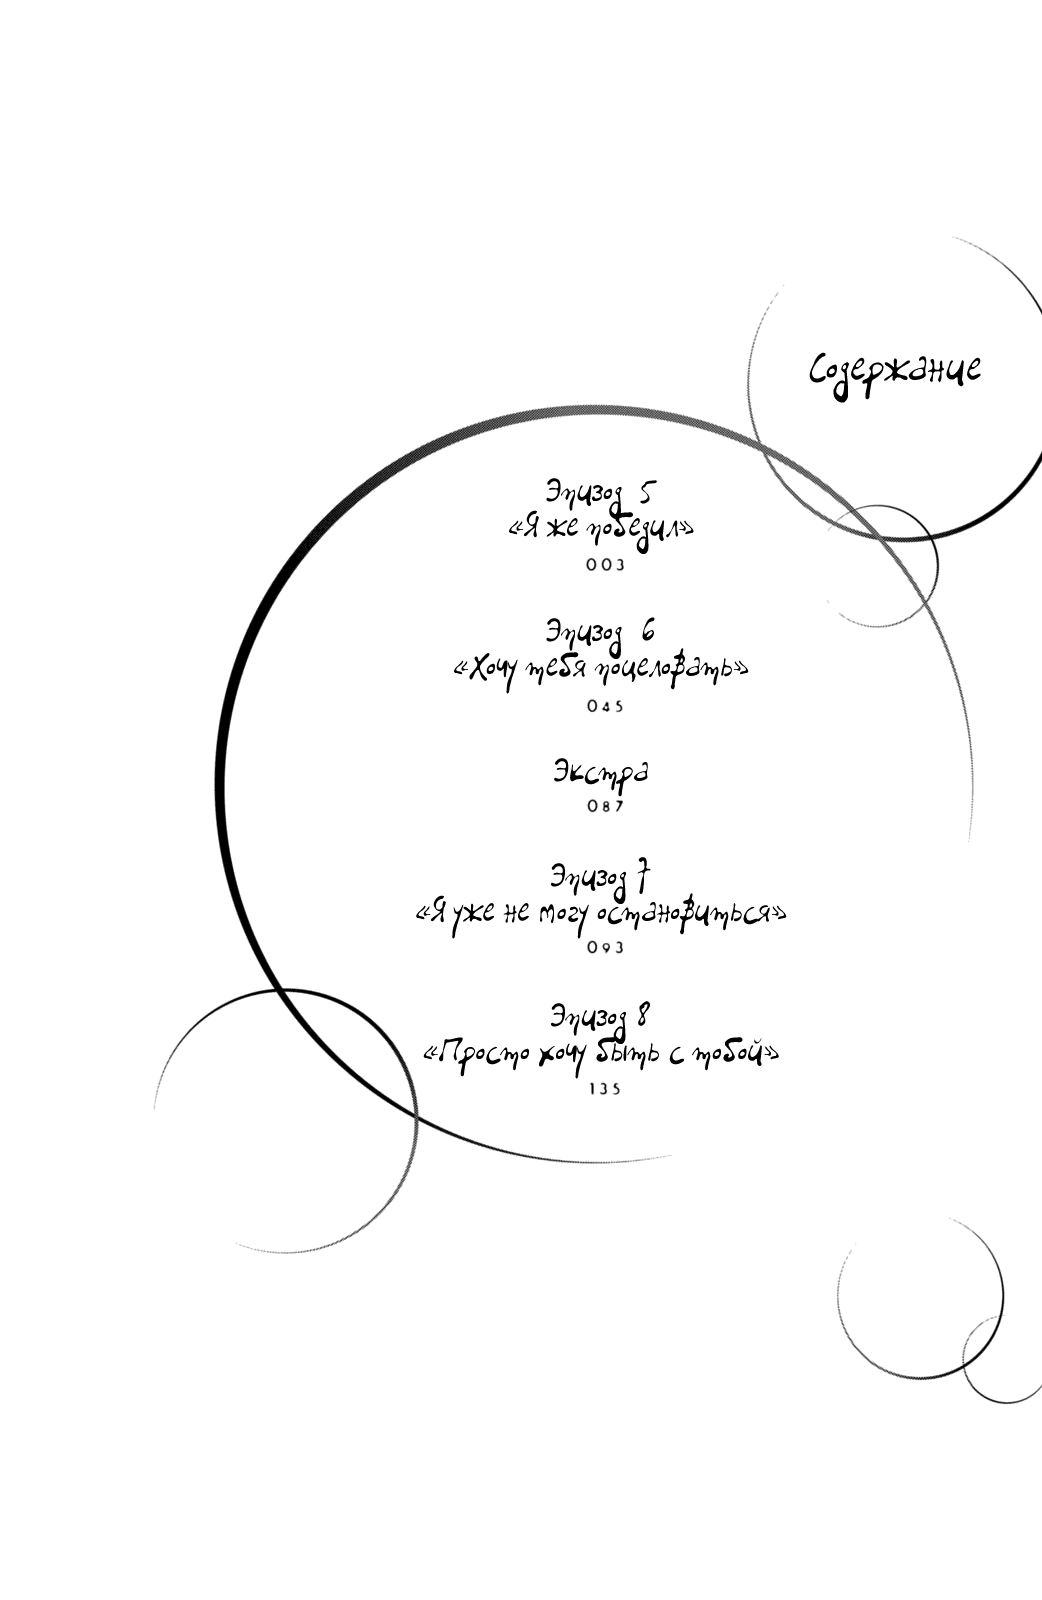 Содержание
Эпизод 5
«Я же победил»
003
Эпизод 6
«Хочу тебя поцеловать»
045
Экстра
087
Эпизод 7
«Я уже не могу остановиться»
093
Эпизод 8
«Просто хочу быть с тобой»
135